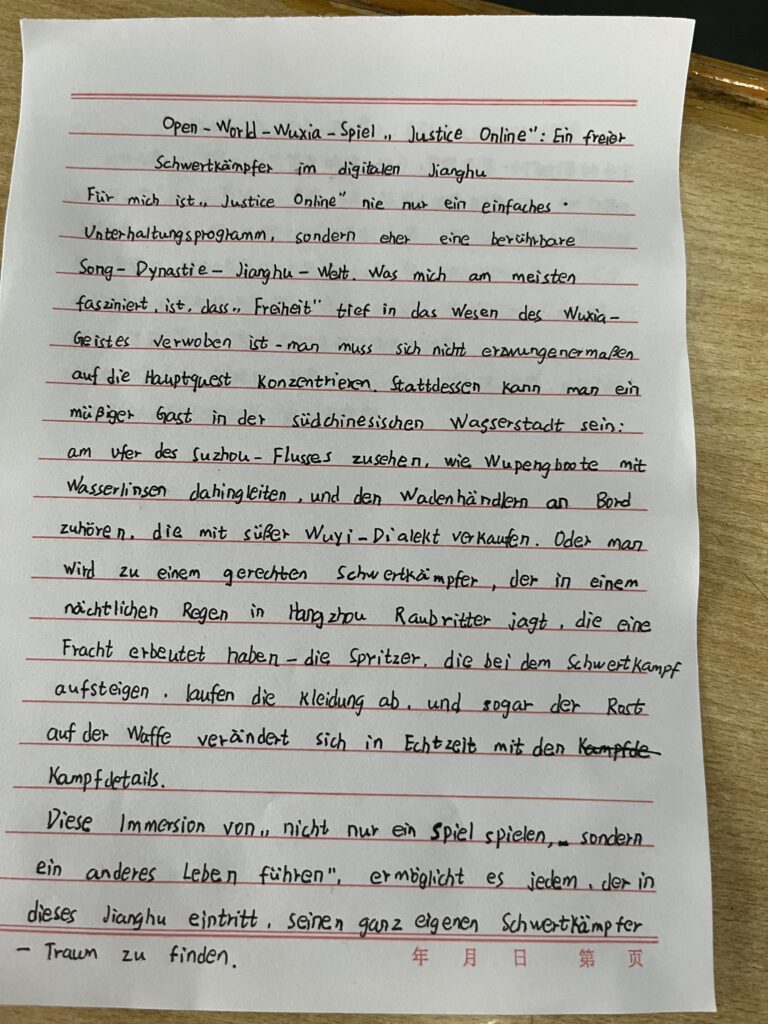 Open-World-Wuxia-Spiel „Justice Online": Ein freier
Schwertkämpfer im digitalen Jianghu
Für mich ist „Justice Online" nie nur ein einfaches
Unterhaltungsprogramm, sondern eher eine berührbare
Song-Dynastie-Jianghu-Welt. Was mich am meisten
fasziniert, ist, dass „Freiheit" tief in das Wesen des Wuxia-
Geistes verwoben ist - man muss sich nicht erzwungenermaßen
auf die Hauptquest konzentrieren. Stattdessen kann man ein
müßiger Gast in der südchinesischen Wasserstadt sein:
am Ufer des Suzhou-Flusses zusehen, wie Wupengboote mit
Wasserlinsen dahingleiten, und den Wadenhändlern an Bord
zuhören, die mit süßer Wuyi-Dialekt verkaufen. Oder man
wird zu einem gerechten Schwertkämpfer, der in einem
nächtlichen Regen in Hangzhou Raubritter jagt, die eine
Fracht erbeutet haben - die Spritzer, die bei dem Schwertkampf
aufsteigen, laufen die Kleidung ab, und sogar der Rost
auf der Waffe verändert sich in Echtzeit mit den Kampfde
Kampfdetails.
Diese Immersion von „nicht nur ein Spiel spielen, sondern
ein anderes Leben führen", ermöglicht es jedem, der in
dieses Jianghu eintritt, seinen ganz eigenen Schwertkämpfer
- Traum zu finden.
年 月 日 第 页